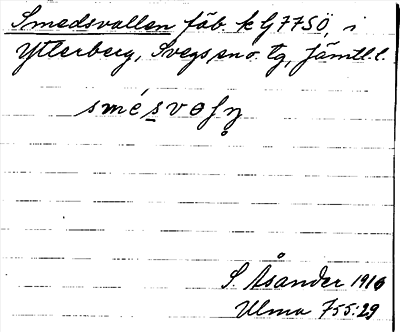 Smedsvallen fäb. k G77SÖ, i
Ytterberg, Svegs sn o. tg, Jämtl. l.
smésvaḷn̥
S. Åsander 1916
Ulma 755:29